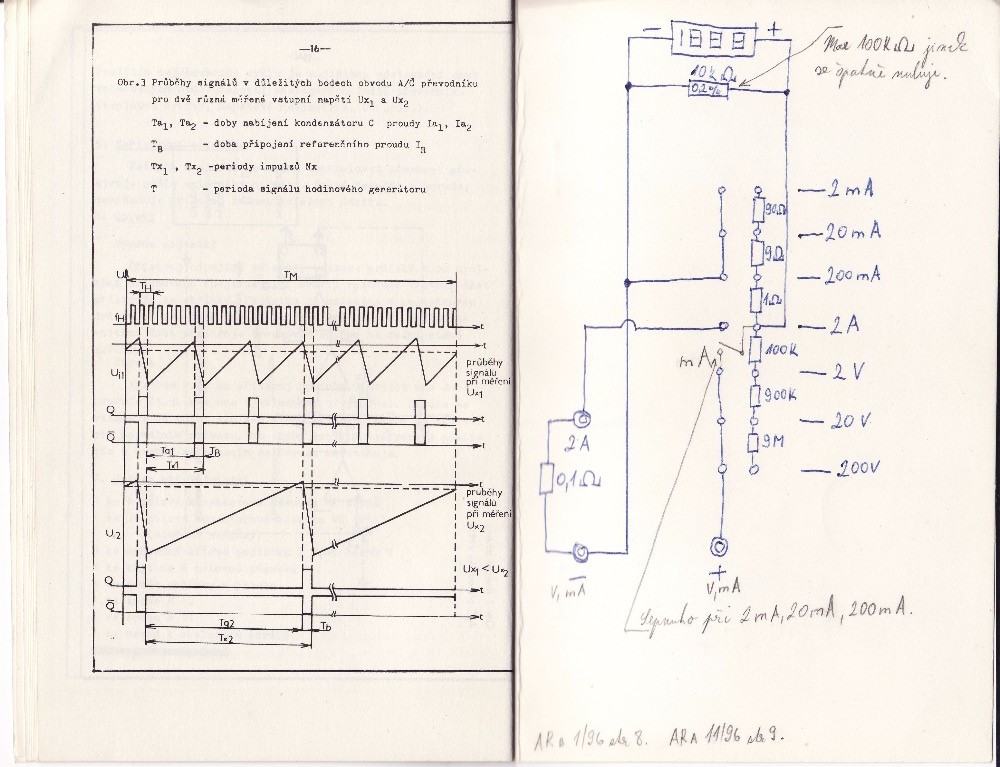 —16—
Obr.3 Průběhy signálů v důležitých bodech obvodu A/Č převodníku
pro dvě různá měřené vstupní napětí Ux1 a Ux2
Ta1, Ta2 - doby nabíjení kondenzátoru C proudy Ia1, Ia2
TB - doba připojení referenčního proudu IR
Tx1 , Tx2 -periody impulzů Nx
T - perioda signálu hodinového generátoru
U
TM
TH
fH
t
t
Ui1
průběhy
signálů
při měření
Ux1
Q
t
Q̅
t
Ta1
TB
Tx1
t
průběhy
signálů
při měření
Ux2
Ui2
Ux1 < Ux2
Q
t
Q̅
t
Ta2
Tb
Tx2
− 1888 +
10kΩ
0,2%
Max 100KΩ jinak
se špatně nuluje.
2 mA
90Ω
20 mA
9Ω
200mA
1Ω
2 A
100K
mA
2 V
900K
20 V
9M
200V
2A
0,1Ω
−
V, mA
+
V, mA
Sepnuto při 2mA, 20mA, 200mA.
ARA 1/96 str 8. ARA 11/96 str 9.